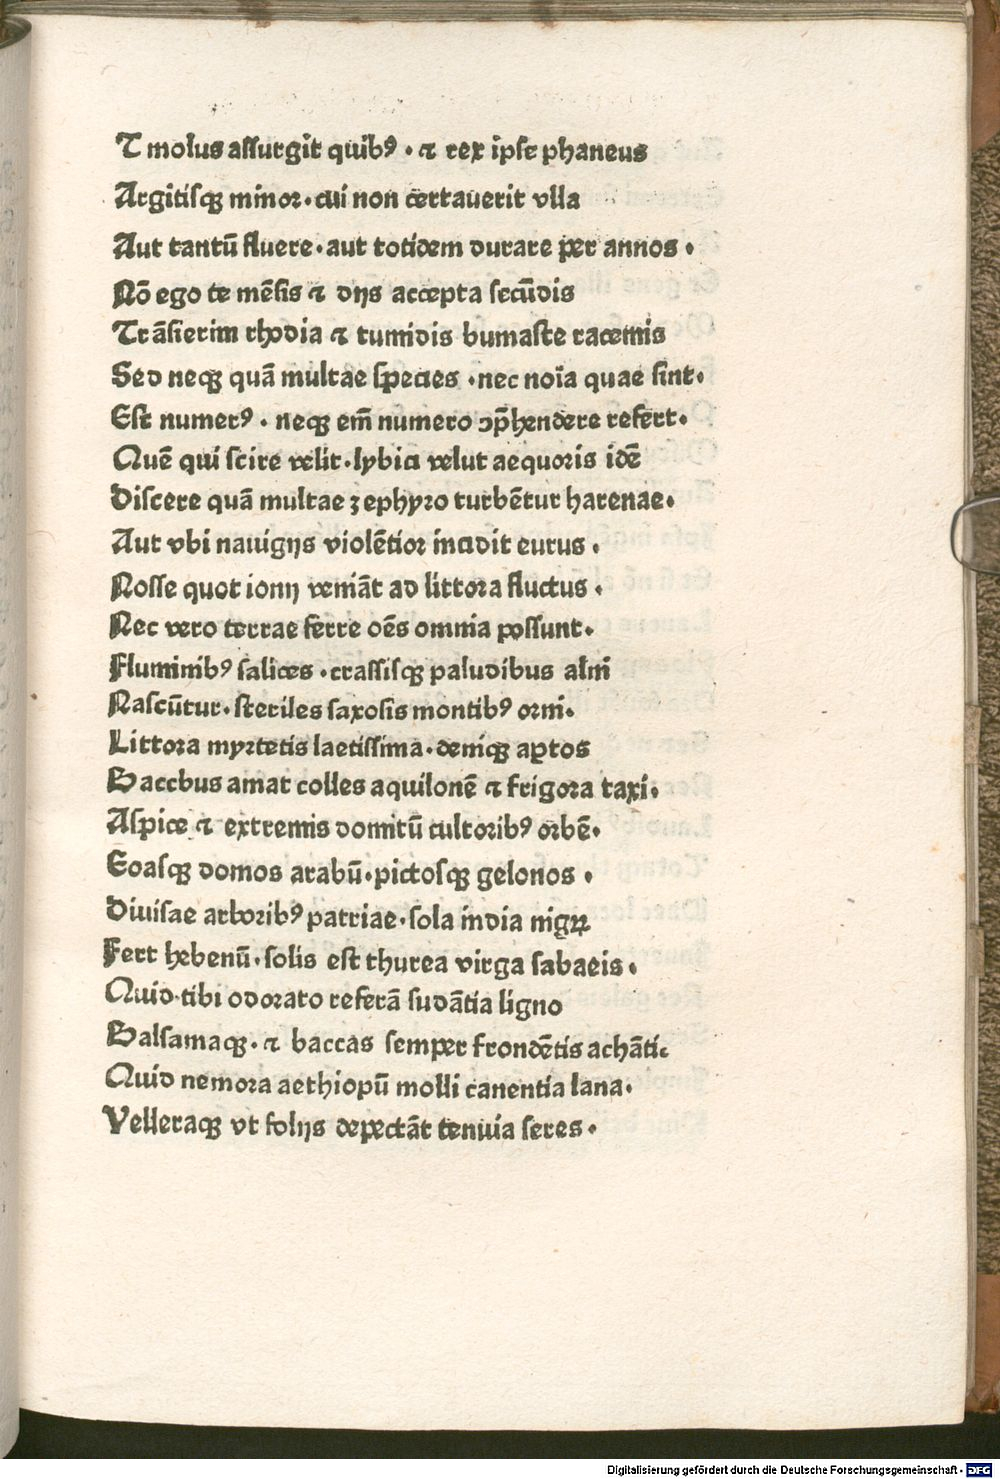 T molus assurgit quibꝰ · ⁊ rex ip̄se phaneus
Argitisqꝫ minor · cui non certauerit vlla
Aut tantū fluere · aut totidem durare per annos ·
Nō ego te mēsis ⁊ dijs accepta secūdis
Trāsierim rhodia ⁊ tumidis bumaste racemis
Sed neqꝫ quā multae species · nec noīa quae sint ·
Est numerꝰ · neqꝫ em̄ numero ↄp̄hendere refert ·
Quē qui scire velit · lybici velut aequoris idē
Discere quā multae zephyro turbētur harenae ·
Aut vbi nauigijs violētior incidit eurus ·
Nosse quot ionij veniāt ad littora fluctus ·
Nec vero terrae ferre oēs omnia possunt ·
Fluminibꝰ salices · crassisqꝫ paludibus alni
Nascūtur · steriles saxosis montibꝰ orni ·
Littora myrtetis laetissima · deniqꝫ aꝑtos
Bacchus amat colles aquilonē ⁊ frigora taxi ·
Aspice ⁊ extremis domitū cultoribꝰ orbē ·
Eoasqꝫ domos arabū · pictosqꝫ gelonos ·
Diuisae arboribꝰ patriae · sola india nigꝝ
Fert hebenū · solis est thurea virga sabaeis ·
Quid tibi odorato referā sudātia ligno
Balsamaqꝫ · ⁊ baccas semper frondētis achāti
Quid nemora aethiopū molli canentia lana ·
Velleraqꝫ vt folijs depectāt tenuia seres ·
Digitalisierung gefördert durch die Deutsche Forschungsgemeinschaft - DFG